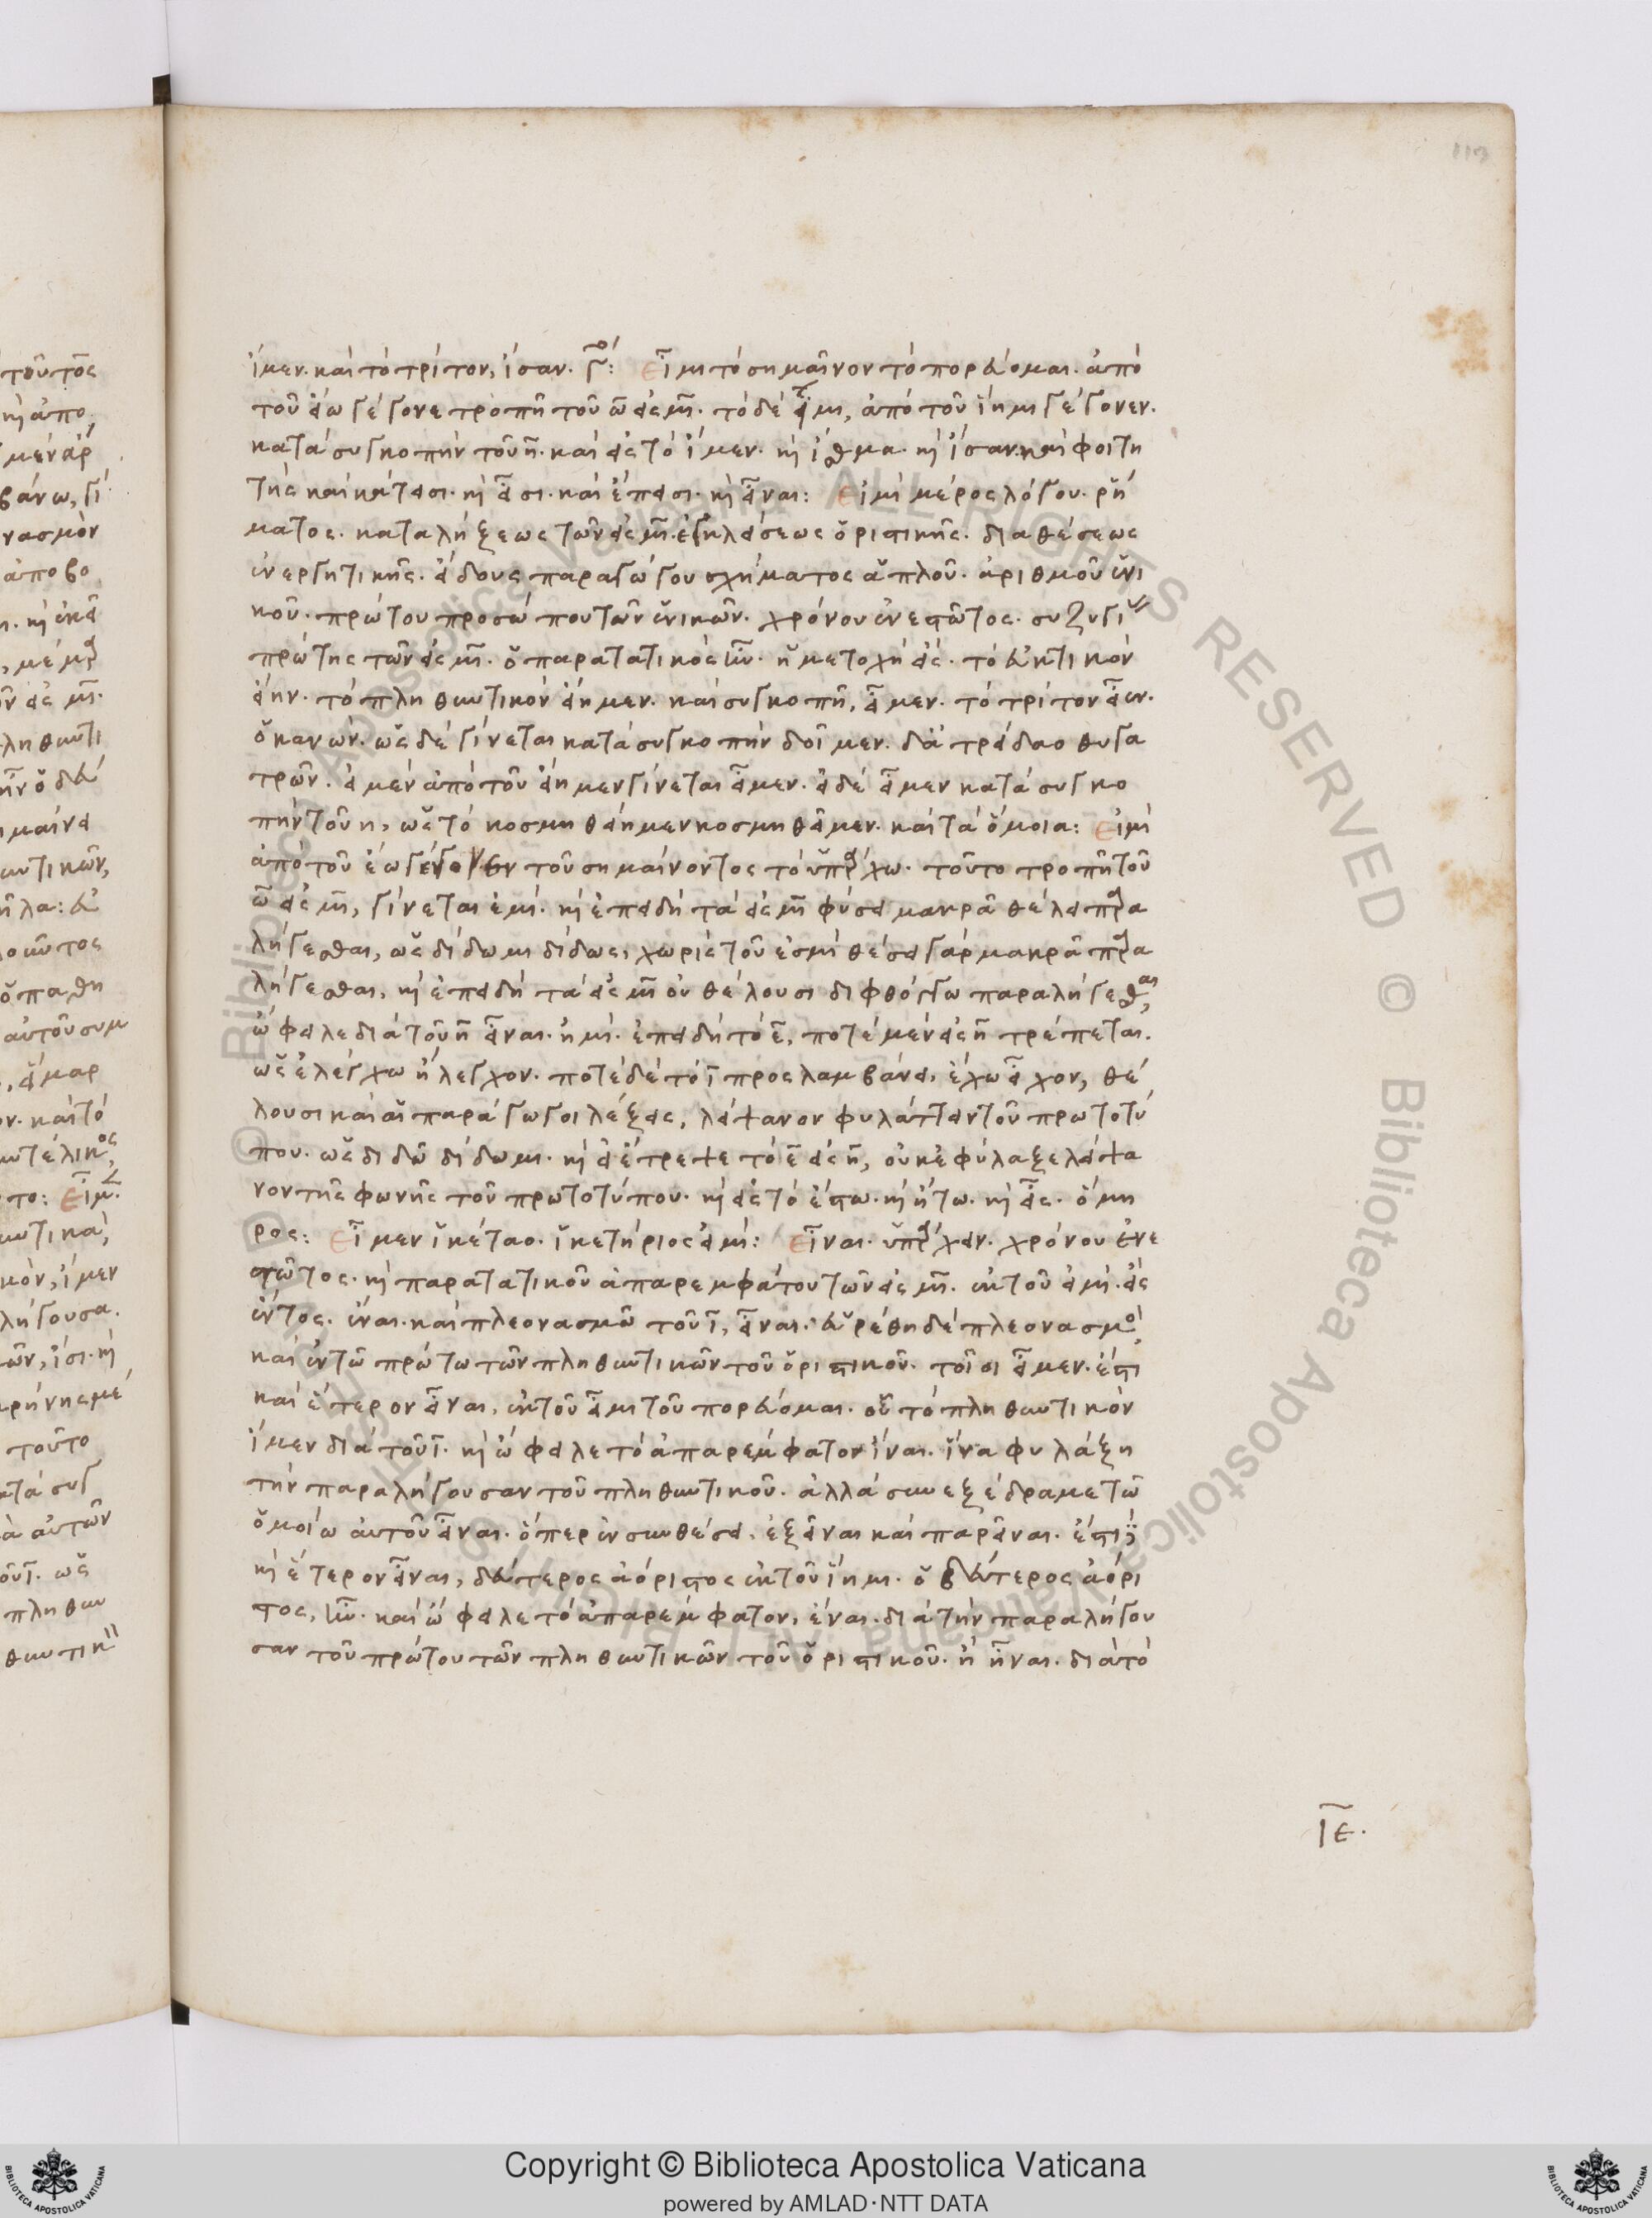 113
ἴμεν. καὶ τὸ τρίτον, ἴσαν. γ´: Εἶμι τὸ σημαῖνον τὸ πορεύομαι. ἀπὸ
τοῦ εἴω γέγονε τροπῆ τοῦ ω εἰς μι. τὸ δὲ εἶμι, ἀπὸ τοῦ ἵημι γέγονεν.
κατὰ συγκοπὴν τοῦ η. καὶ εἰς τὸ ἴμεν. καὶ ἴθμα. καὶ ἴσαν. καὶ φοιτη
τῆς καὶ κάτεισι. καὶ εἶσι. καὶ ἔπεισι. καὶ εἶναι: Εἰμὶ μέρος λόγου. ῥή
ματος. καταλήξεως τῶν εἰς μι. ἐγκλίσεως ὁριστικῆς. διαθέσεως
ἐνεργητικῆς. εἴδους παραγώγου σχήματος ἁπλοῦ. ἀριθμοῦ ἑνι
κοῦ. πρώτου προσώπου τῶν ἑνικῶν. χρόνου ἐνεστῶτος. συζυγί
πρώτης τῶν εἰς μι. ὁ παρατατικὸς ἦν. ἡ μετοχὴ εἰς. τὸ εὐκτικὸν
εἴην. τὸ πληθυντικὸν εἴημεν. καὶ συγκοπῆ, εἶμεν. τὸ τρίτον εἶεν.
ὁ κανών. ὡς δὲ γίνεται κατὰ συγκοπὴν δοῖμεν. δὰ τρείδαο θυγα
τρῶν. εἰ μὲν ἀπὸ τοῦ εἴημεν γίνεται εἶμεν. εἰ δὲ εἶμεν κατὰ συγκο
πὴν τοῦ η, ὡς τὸ κοσμηθείημεν κοσμηθεῖμεν. καὶ τὰ ὅμοια: Εἰμὶ
ἀπὸ τοῦ ἔω γέγονεν τοῦ σημαίνοντος τὸ ὑπάρχω. τοῦτο τροπῆ τοῦ
ω εἰς μι, γίνεται ἐμί. καὶ ἐπειδὴ τὰ εἰς μι φύσει μακρᾶ θέλει παρα
λήγεσθαι, ὡς δίδωμι δίδως, χωρὶς τοῦ ἐσμὴ θέσει γὰρ μακρᾶ παρα
λήγεσθαι, καὶ ἐπειδὴ τὰ εἰς μι οὐ θέλουσι διφθόγγω παραλήγεσθαι,
ὤφειλε διὰ τοῦ η εἶναι. ἠμί. ἐπειδὴ τὸ ε, ποτὲ μὲν εἰς η τρέπεται.
ὡς ἐλέγχω ἤλεγχον. ποτὲ δὲ τὸ ι προσλαμβάνει, ἔχω εἶχον, θέ
λουσι καὶ αἱ παράγωγοι λέξεις, λείψανον φυλάττειν τοῦ πρωτοτύ
που. ὡς διδῶ δίδωμι. καὶ εἰ ἔτρεψε τὸ ε εἰς η, οὐκ ἐφύλαξε λείψα
νον τῆς φωνῆς τοῦ πρωτοτύπου. καὶ εἰς τὸ ἔστω. καὶ ἤτω. καὶ εἶς. ὅμη
ρος: Εἶμεν ἱκέταο. ἱκετήριος εἰμί: Εἶναι. ὑπάρχειν. χρόνου ἐνε
στῶτος. καὶ παρατατικοῦ ἀπαρεμφάτου τῶν εἰς μι. ἐκ τοῦ εἰμὶ. εἰς
ἐντος. ἔναι. καὶ πλεονασμῶ τοῦ ι, εἶναι. εὑρέθη δὲ πλεονασμὸ
καὶ ἐν τῶ πρώτω τῶν πληθυντικῶν τοῦ ὁριστικοῦ. τοῖσι εἶμεν. ἔστι
καὶ ἕτερον εἶναι, ἐκ τοῦ εἶμι τοῦ πορεύομαι. οὗ τὸ πληθυντικὸν
ἴμεν διὰ τοῦ ι. καὶ ὤφειλε τὸ ἀπαρέμφατον ἴναι. ἵνα φυλάξη
τὴν παραλήγουσαν τοῦ πληθυντικοῦ. ἀλλὰ συνεξέδραμε τῶ
ὁμοίω αὐτοῦ εἶναι. ὅπερ ἐν συνθέσει, ἐξεῖναι καὶ παρεῖναι. ἔστι
καὶ ἕτερον εἶναι, δεύτερος ἀόριστος ἐκ τοῦ ἵημι. ὁ δεύτερος ἀόρι
στος, ἦν. καὶ ὤφειλε τὸ ἀπαρέμφατον, ἕναι. διὰ τὴν παραλήγου
σαν τοῦ πρώτου τῶν πληθυντικῶν τοῦ ὁριστικοῦ. ἢ ἦναι. διὰ τὸ
ιε.
Copyright © Biblioteca Apostolica Vaticana
powered by AMLAD·NTT DATA